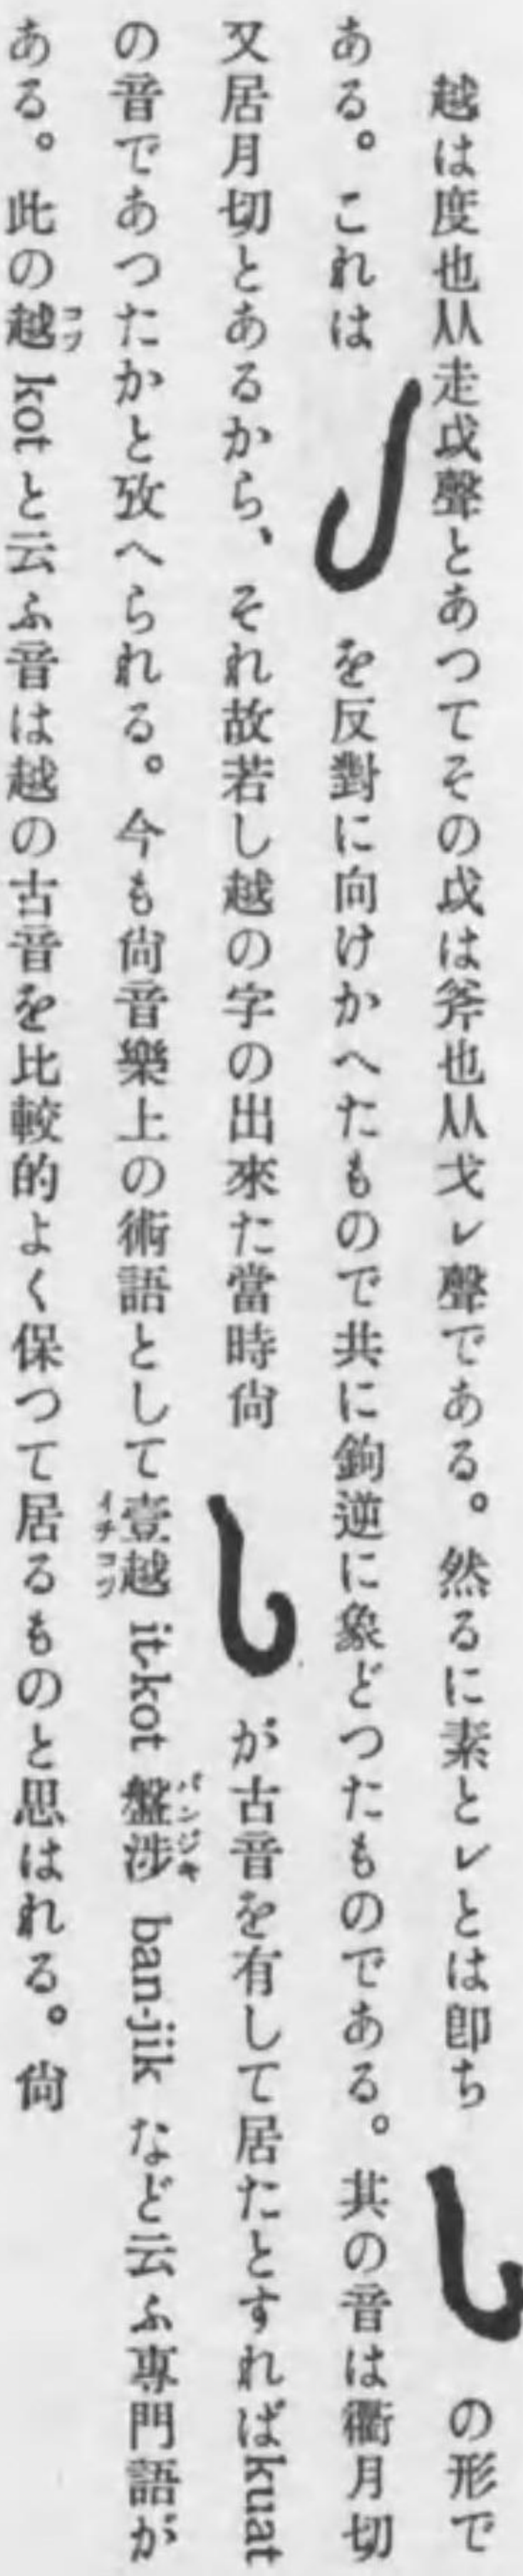 越は度也从走戉聲とあつてその戉は斧也从戈レ聲である。然るに素とレとは卽ちの形で
ある。これはを反對に向けかへたもので共に鉤逆に象どつたものである。其の音は衢月切
又居月切とあるから、それ故若し越の字の出來た當時尙が古音を有して居たとすればkuat
の音であつたかと攷へられる。今も尙音樂上の術語として壹越イチコツ it-kot 盤涉バンジキ ban-jik など云ふ專門語が
ある。此の越コツ kotと云ふ音は越の古音を比較的よく保つて居るものと思はれる。尙